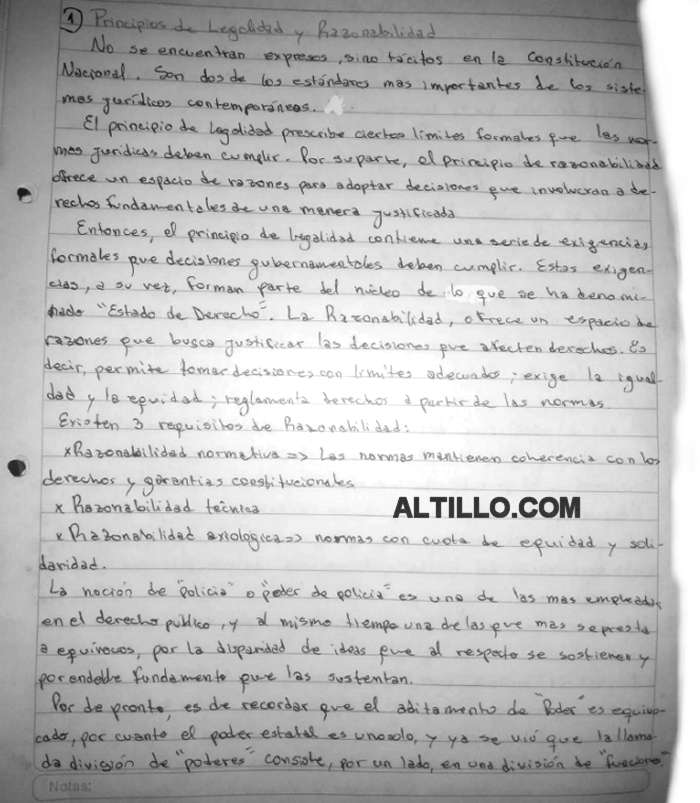 1 Principios de Legalidad y Razonabilidad
No se encuentran expresos, sino tácitos en la Constitución
Nacional. Son dos de los estándares mas importantes de los siste-
mas jurídicos contemporáneos.
El principio de Legalidad prescribe ciertos límites formales que las nor-
mas jurídicas deben cumplir. Por su parte, el principio de razonabilidad
ofrece un espacio de razones para adoptar decisiones que involucran a de-
rechos fundamentales de una manera justificada
Entonces, el principio de legalidad contiene una serie de exigencias
formales que decisiones gubernamentales deben cumplir. Estas exigen-
cias, a su vez, forman parte del núcleo de lo que se ha denomi-
nado "Estado de Derecho". La Razonabilidad, ofrece un espacio de
razones que busca justificar las decisiones que afecten derechos. Es
decir, permite tomar decisiones con límites adecuados; exige la igual-
dad y la equidad; reglamenta derechos a partir de las normas.
Existen 3 requisitos de Razonabilidad:
x Razonabilidad normativa => Las normas mantienen coherencia con los
derechos y garantías constitucionales
x Razonabilidad técnica
ALTILLO.COM
x Razonabilidad axiológica => normas con cuota de equidad y soli-
daridad.
La noción de "policía" o "poder de policía" es una de las mas empleadas
en el derecho público, y al mismo tiempo una de las que mas se presta
a equívocos, por la disparidad de ideas que al respecto se sostienen y
por endeble fundamento que las sustentan.
Por de pronto, es de recordar que el aditamento de "Poder" es equivo-
cado, por cuanto el poder estatal es uno solo, y ya se vió que la llama-
da división de "poderes" consiste, por un lado, en una división de "funciones"
Notas: